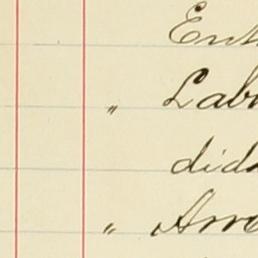 Ent
" Lab
did
" Arr